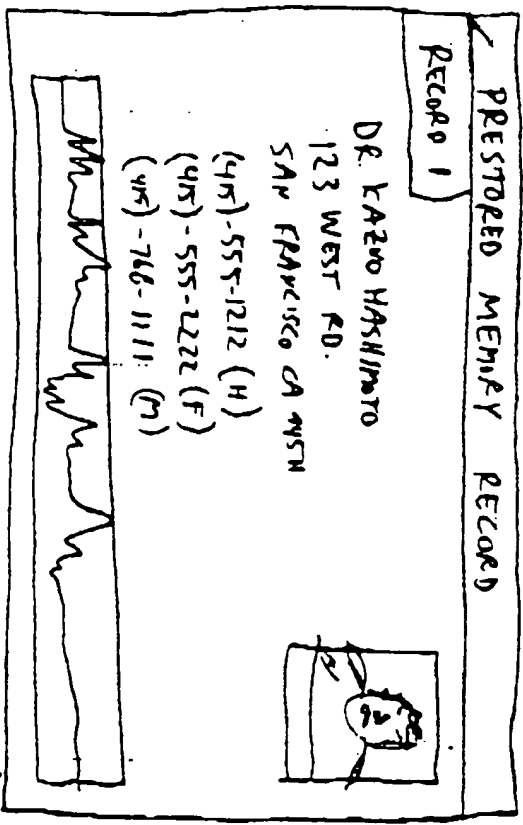 PRESTORED MEMORY RECORD
RECORD 1
DR. KAZUO HASHIMOTO
123 WEST RD.
SAN FRANCISCO CA
(415)-555-1212 (H)
(415)-555-2222 (F)
(415)-768-1111 (M)